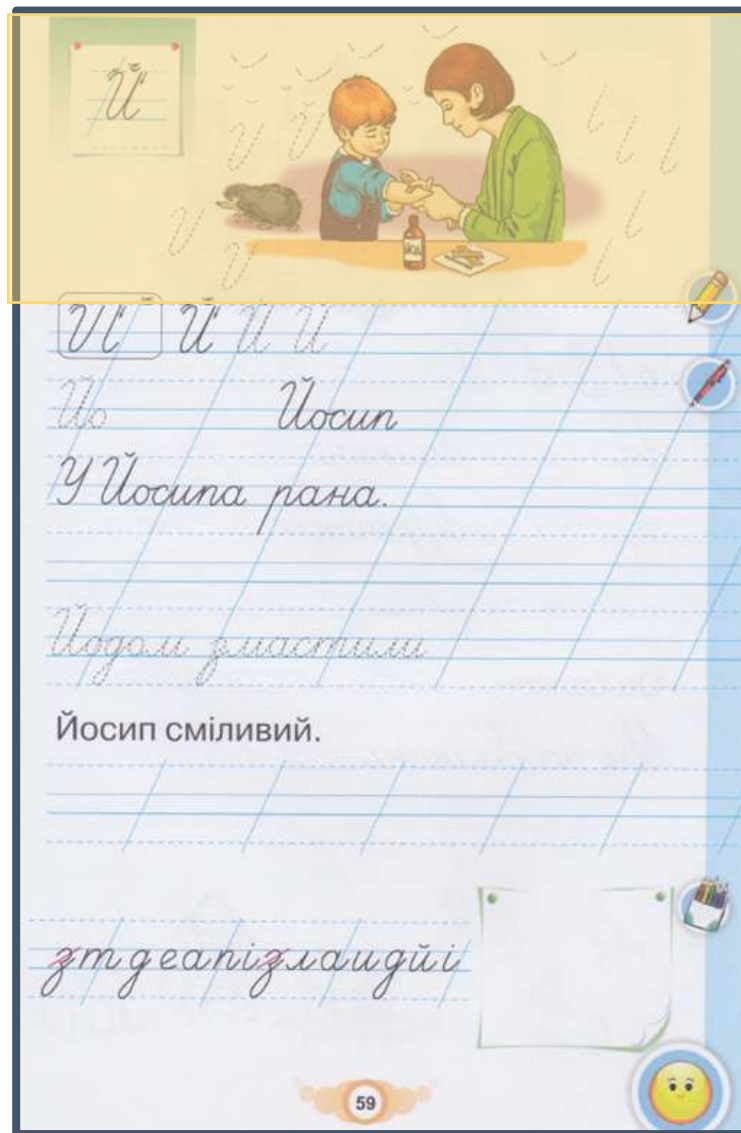 Й
И И И
И И
ЙОД
Й Й Й Й
Йо Йосип
У Йосипа рана.
Йодом змастили
Йосип сміливий.
зтдеапізлаидйі
59